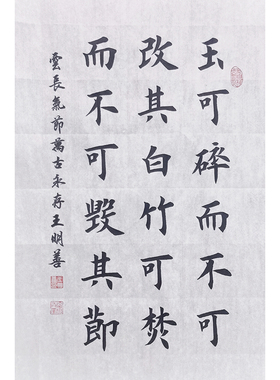 玉可碎而不可
改其白竹可焚
而不可毀其節
雲長氣節萬古永存王明善